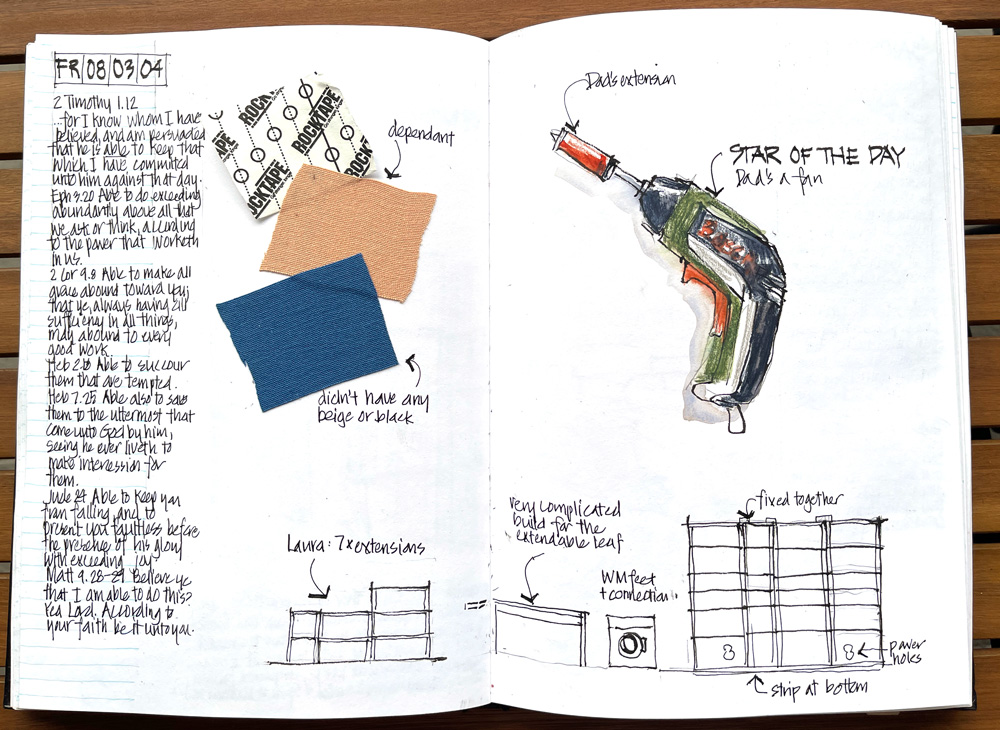 FR 08 03 04
2 Timothy 1.12
...for I know whom I have
believed, and am persuaded
that he is able to keep that
which I have committed
unto him against that day.
Eph 3.20 Able to do exceeding
abundantly above all that
we ask or think, according
to the power that worketh
in us.
2 Cor 9.8 Able to make all
grace abound toward you;
that ye, always having all
sufficiency in all things,
may abound to every
good work.
Heb 2.18 Able to succour
them that are tempted.
Heb 7.25 Able also to save
them to the uttermost that
come unto God by him,
seeing he ever liveth to
make intercession for
them.
Jude 24 Able to keep you
from falling, and to
present you faultless before
the presence of his glory
with exceeding joy
Matt 9.28-29 Believe ye
that I am able to do this?
Yea Lord. According to
your faith be it unto you.
ROCKTAPE
ROCKTAPE
ROCKTAPE
dependant
didn't have any
beige or black
Laura: 7x extensions
Dad's extension
STAR OF THE DAY
Dad's a fan
BOSCH
very complicated
build for the
extendable leaf
WM feet
+ connection
fixed together
power
holes
strip at bottom